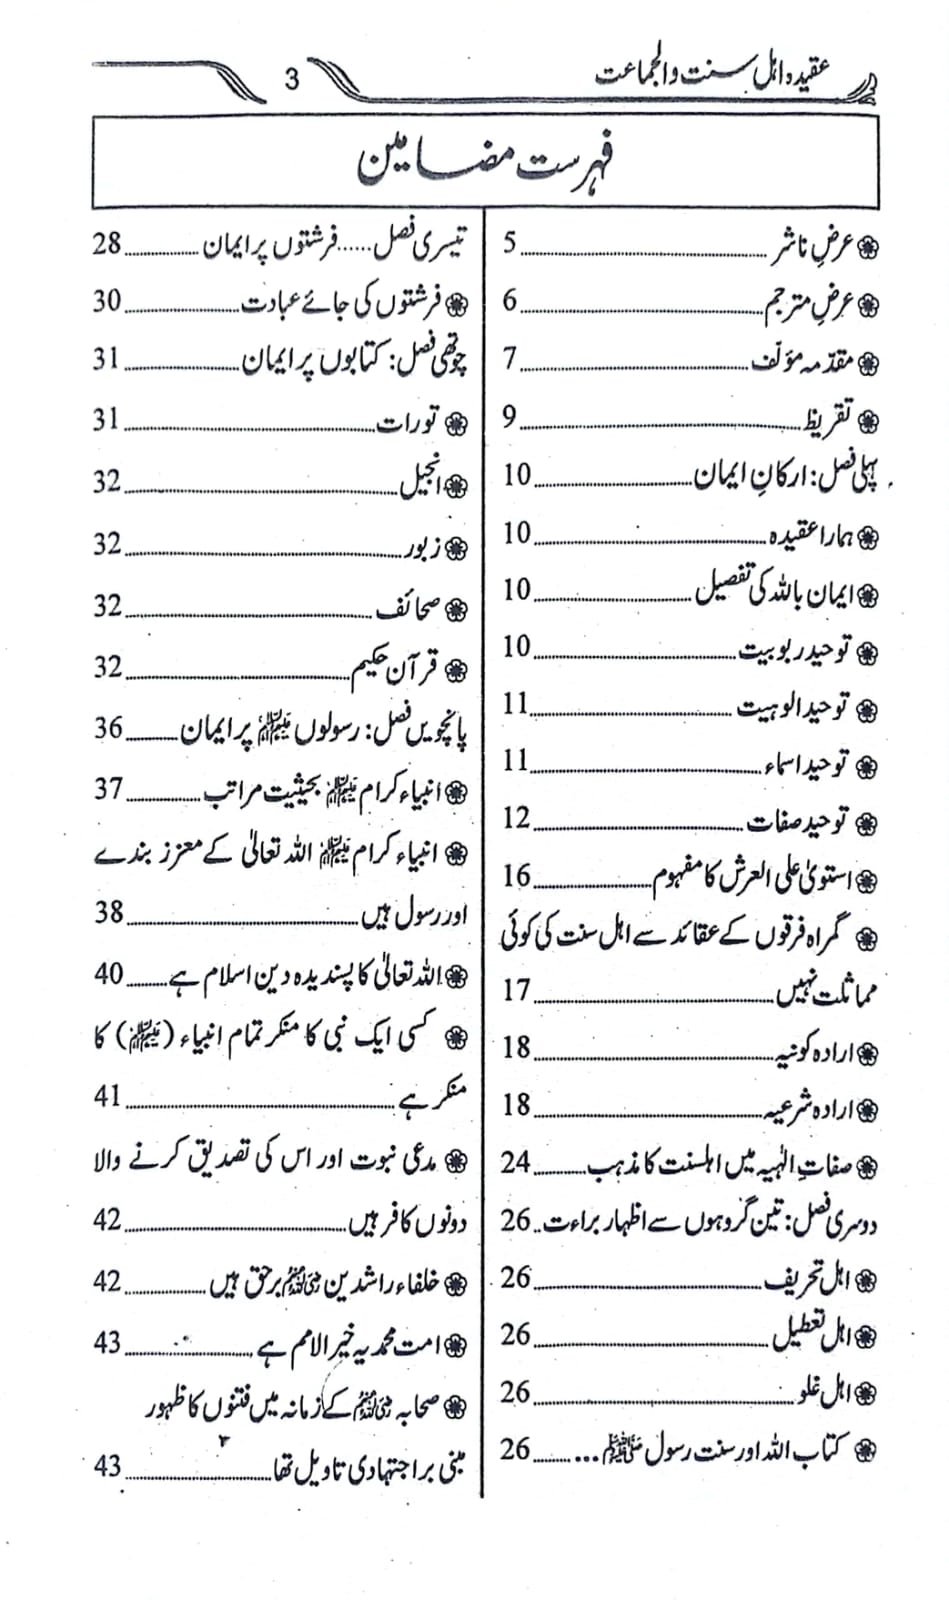 عقیدہ اہل سنت والجماعت
3
فہرست مضامین
❀ عرضِ ناشر ........ 5
❀ عرضِ مترجم ........ 6
❀ مقدّمہ مؤلّف ........ 7
❀ تقریظ ........ 9
پہلی فصل: ارکانِ ایمان ........ 10
❀ ہمارا عقیدہ ........ 10
❀ ایمان باللہ کی تفصیل ........ 10
❀ توحید ربوبیت ........ 10
❀ توحید الوہیت ........ 11
❀ توحید اسماء ........ 11
❀ توحید صفات ........ 12
❀ استویٰ علی العرش کا مفہوم ........ 16
❀ گمراہ فرقوں کے عقائد سے اہل سنت کی کوئی
مماثلت نہیں ........ 17
❀ ارادہ کونیہ ........ 18
❀ ارادہ شرعیہ ........ 18
❀ صفاتِ الٰہیہ میں اہلسنت کا مذہب ........ 24
دوسری فصل: تین گروہوں سے اظہار براءت .. 26
❀ اہل تحریف ........ 26
❀ اہل تعطیل ........ 26
❀ اہل غلو ........ 26
❀ کتاب اللہ اور سنت رسول ﷺ ... ........ 26
تیسری فصل ...... فرشتوں پر ایمان ........ 28
❀ فرشتوں کی جائے عبادت ........ 30
چوتھی فصل: کتابوں پر ایمان ........ 31
❀ تورات ........ 31
❀ انجیل ........ 32
❀ زبور ........ 32
❀ صحائف ........ 32
❀ قرآن حکیم ........ 32
پانچویں فصل: رسولوں علیہم السلام پر ایمان ........ 36
❀ انبیاء کرام علیہم السلام بحیثیت مراتب ........ 37
❀ انبیاء کرام علیہم السلام اللہ تعالیٰ کے معزز بندے
اور رسول ہیں ........ 38
❀ اللہ تعالیٰ کا پسندیدہ دین اسلام ہے ........ 40
❀ کسی ایک نبی کا منکر تمام انبیاء (علیہم السلام) کا
منکر ہے ........ 41
❀ مدعی نبوت اور اس کی تصدیق کرنے والا
دونوں کافر ہیں ........ 42
❀ خلفاء راشدین رضی اللہ عنہم برحق ہیں ........ 42
❀ امت محمدیہ خیر الامم ہے ........ 43
❀ صحابہ رضی اللہ عنہم کے زمانہ میں فتنوں کا ظہور
مبنی بر اجتہادی تاویل تھا ........ 43